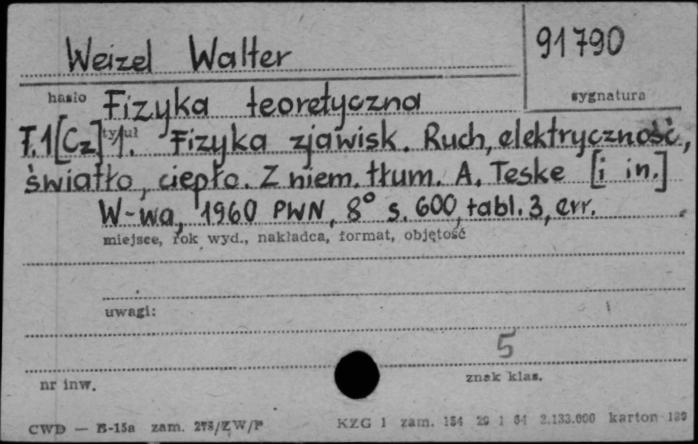 Weizel Walter
91790
hasło
sygnatura
Fizyka teoretyczna
tytuł
T.1 [Cz] 1. Fizyka zjawisk. Ruch, elektryczność,
światło, ciepło. Z niem. tłum. A. Teske [i in.]
W-wa, 1960 PWN, 8° s. 600, tabl. 3, err.
miejsce, rok wyd., nakładca, format, objętość
uwagi:
5
nr inw.
znak klas.
CWD — B-15a zam. 278/ZW/P
KZG 1 zam. 154 29 1 64 2.133.000 karton